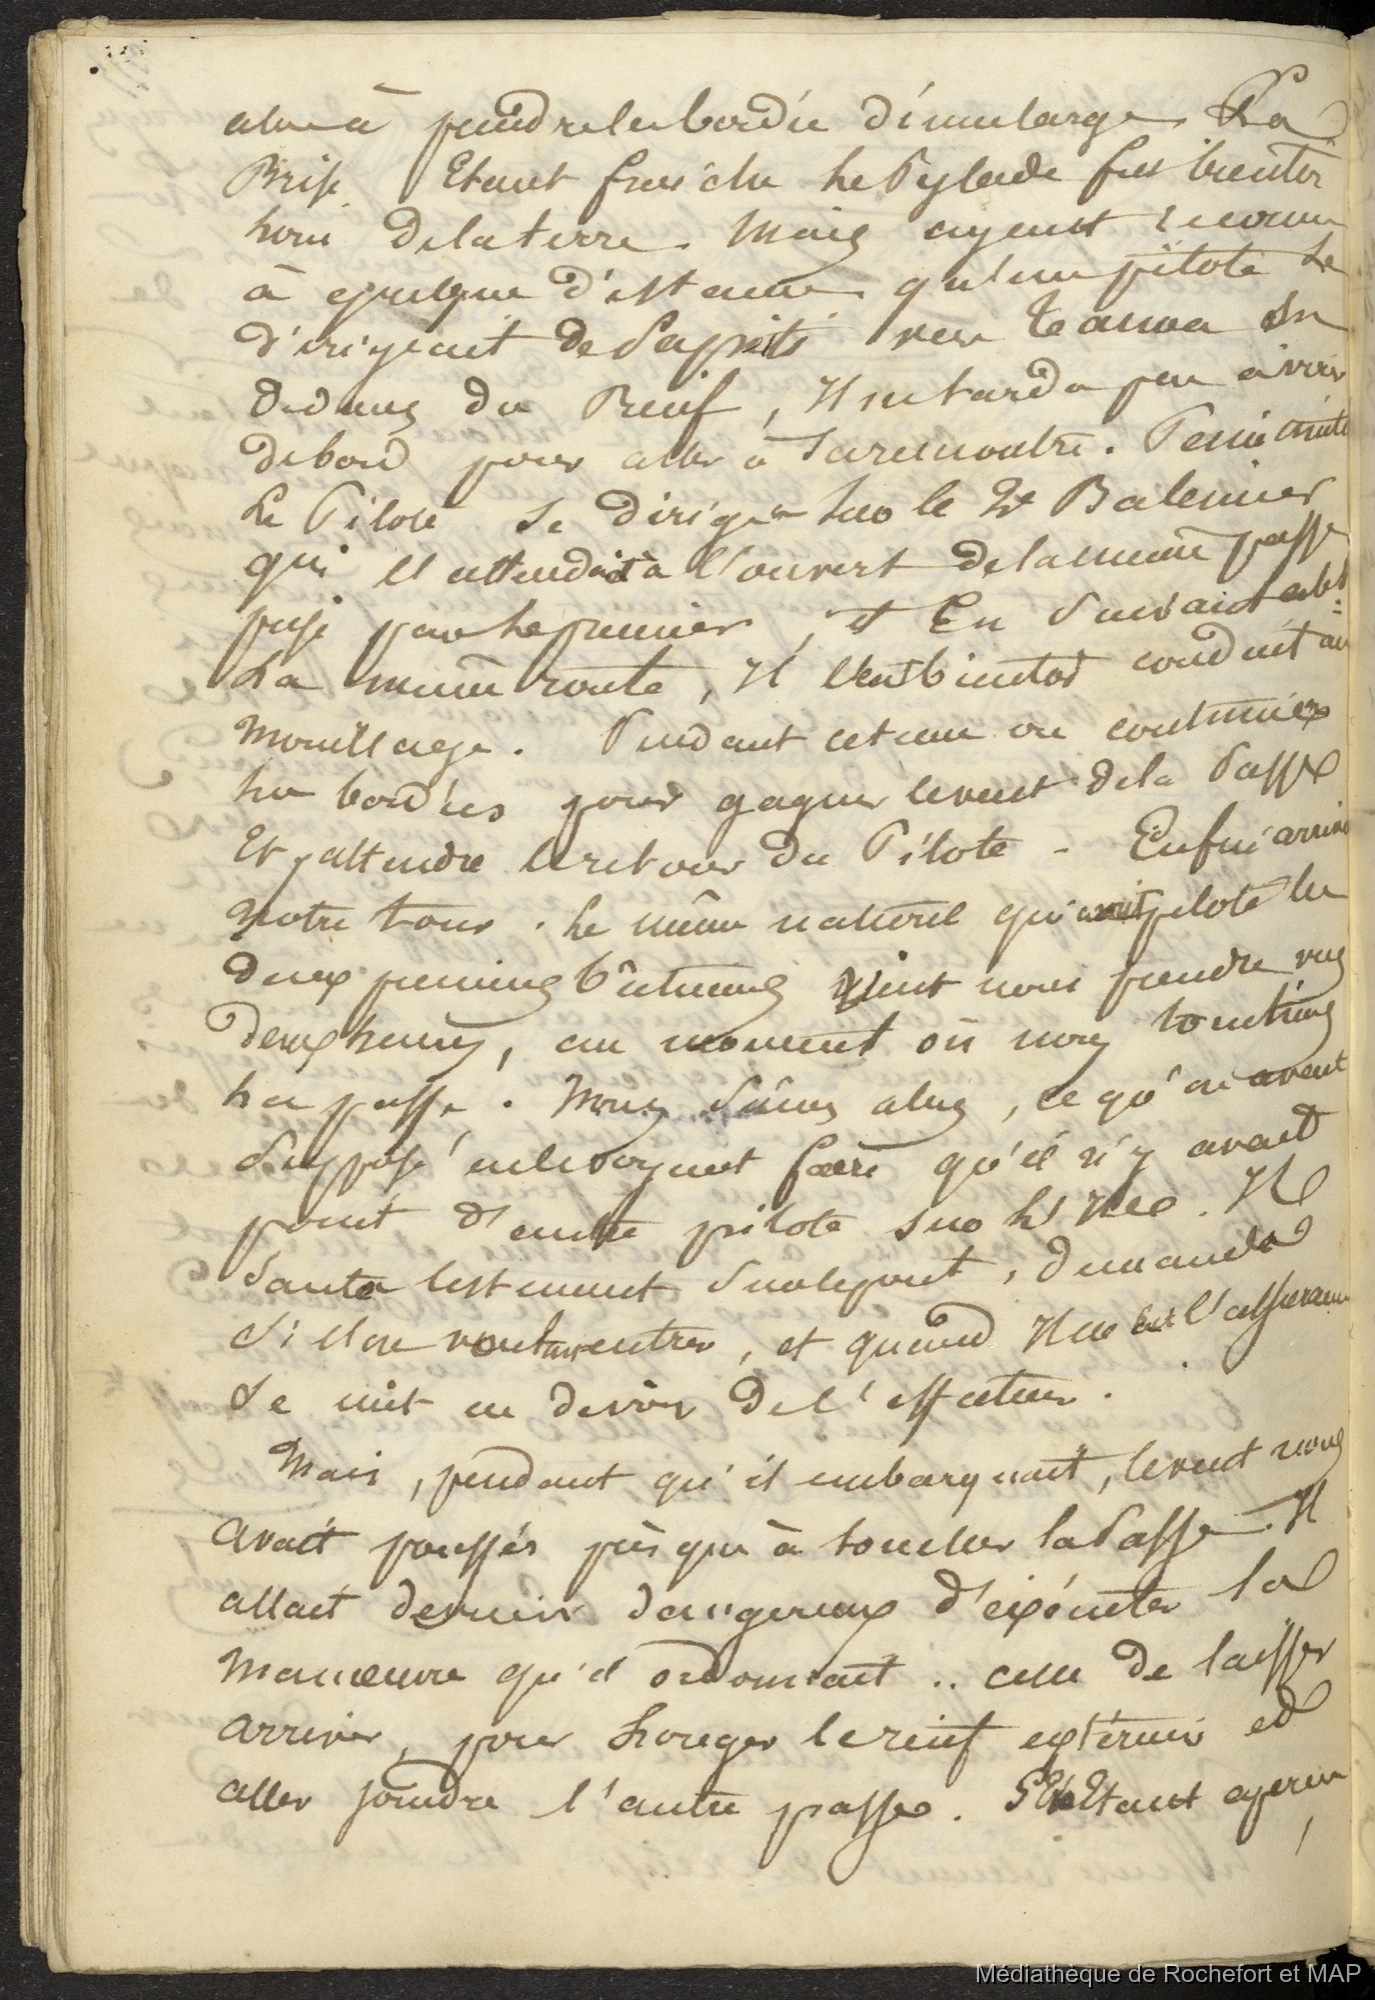 alors à prendre la bordée du large. La
Brise Etant fraiche le Pylade fut bientôt
hors de la terre. Mais ayant reconnu
à quelque distance qu'un pilote se
dirigeait de Papeiti vers Taunoa En
dedans du Récif, Il ne tarda pas à virer
debord pour aller à Sa rencontre. Ensuite
Le Pilote se dirigea sur le 2e Baleinier
qui l'attendait à l'ouvert de la même passe
prise par le premier, et En Suivant
La même route, Il l'eut bientôt conduit au
mouillage. Pendant ce tems on continuer
les bordées pour gagner le vent de la Passe
Et y attendre le retour du Pilote - Enfin arriva
notre tour. Le même naturel qui avait piloté les
deux premiers bâtiments vint nous prendre vers
deux heures, au moment où nous touchions
La passe. Nous Sûmes alors, ce qu'on avait
Supposé en le voyant faire qu'il n'y avait
point d'autre pilote sur les Iles. Il
Sauta lestement Sur le pont, demanda
Si l'on voulait entrer, et quand Il en eut l'assurance
Se mit en devoir de l'effectuer.
Mais, pendant qu'il embarquait, le vent nous
avait poussés jusqu'à toucher la Passe. Il
allait devenir dangereux d'exécuter la
manœuvre qu'il ordonnait .. celle de laisser
arriver, pour longer le récif extérieur et
aller joindre l'autre passe. S'Etant aperçu
Médiathèque de Rochefort et MAP